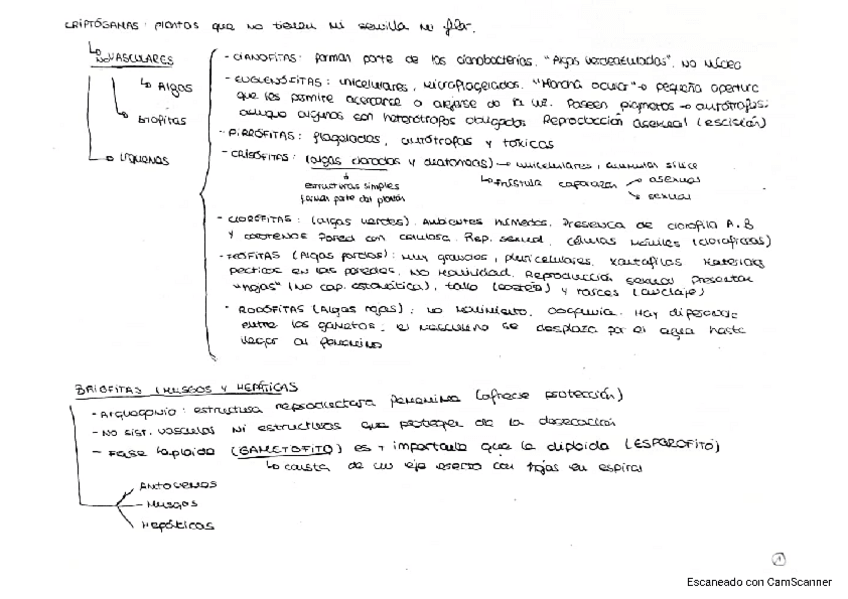 CRIPTÓGAMAS: plantas que no tienen ni semilla ni flor.
NO VASCULARES
Algas
Briófitas
Líquenes
- CIANOFITAS: forman parte de las cianobacterias. "Algas verdeazuladas". No núcleo
- EUGLENÓFITAS: unicelulares, microflagelados. "Mancha ocular" → pequeña apertura
que les permite acercarse o alejarse de la luz. Poseen pigmentos → autótrofos;
aunque algunos son heterótrofos obligados. Reproducción asexual (escisión)
- PIRRÓFITAS: flageladas, autótrofas y tóxicas
- CRISÓFITAS: (algas doradas y diatomeas) → unicelulares, acumulan sílice
estructuras simples
forman parte del plancton
frústula caparazón
asexual
sexual
- CLORÓFITAS: (algas verdes). Ambientes húmedos. Presencia de clorofila A, B
y carotenos. Pared con celulosa. Rep. sexual. Células móviles
(Algas pardas): muy grandes, pluricelulares. Xantofilas. Materiales
pécticos en las paredes. No movilidad. Reproducción sexual. Presentan
"hojas" (no cap. estomática), tallo y raíces (anclaje)
- RODÓFITAS (Algas rojas): no movimiento. Oogamia. Hay
entre los gametos; el masculino se desplaza por el agua hasta
llegar al femenino
BRIOFITAS (MUSGOS Y HEPÁTICAS
- Arquegonio: estructura reproductora femenina (ofrece protección)
- No sist. vascular ni estructuras que protegen de la desecación
- Fase haploide (GAMETOFITO) es + importante que la diploide (ESPOROFITO)
consta de un eje erecto con hojas en espiral
Antoceros
Musgos
Hepáticas
1
Escaneado con CamScanner